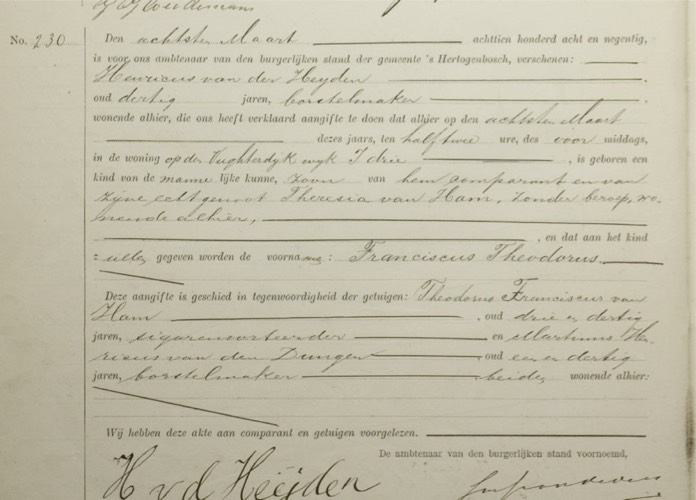 No. 230
Den achtsten Maart achttien honderd acht en negentig,
is voor ons ambtenaar van den burgerlijken stand der gemeente 's Hertogenbosch, verschenen:
Henricus van der Heyden,
oud dertig jaren, borstelmaker,
wonende alhier, die ons heeft verklaard aangifte te doen dat alhier op den achtsten Maart
dezes jaars, ten half twee ure, des voor middags,
in de woning op den Vughterdyk wyk I drie, is geboren een
kind van de manne lijke kunne, zoon van hem comparant en van
zijne echtgenoot Theresia van Ham, zonder beroep, wo-
nende alhier,
, en dat aan het kind
zullen gegeven worden de voornamen: Franciscus Theodorus.
Deze aangifte is geschied in tegenwoordigheid der getuigen: Theodorus Franciscus van
Ham, oud drie en dertig
jaren, sigarensorteerder en Martinus Hen-
ricus van den Dungen, oud een en dertig
jaren, borstelmaker beiden wonende alhier:
Wij hebben deze akte aan comparant en getuigen voorgelezen.
De ambtenaar van den burgerlijken stand voornoemd,
H v d Heijden